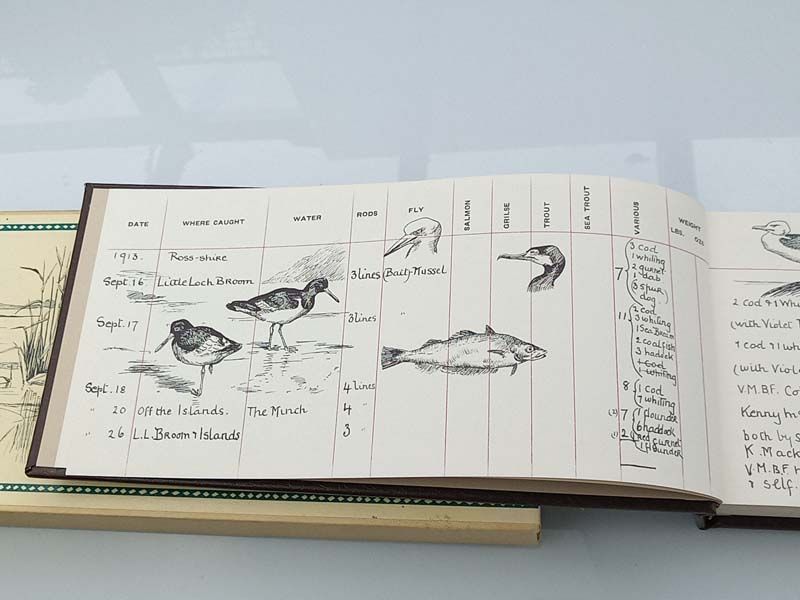 DATE WHERE CAUGHT WATER RODS FLY SALMON GRILSE TROUT SEA TROUT VARIOUS WEIGHT
LBS. OZS
1913. Ross-shire
Sept. 16 Little Loch Broom 3 lines (Bait)-Mussel
7 3 Cod
1 whiling
2 gurnet
1 dab
(3 spur)
dog
Sept. 17 3 lines "
11 2 cod
3 whiting
1 Sea Bream
2 coalfish
3 haddock
1 Cod
1 whiting
Sept. 18 4 lines "
8 1 cod
7 whiting
" 20 Off the Islands. The Minch 4 "
(2) 7 1 flounder
6 haddock
" 26 L.L. Broom & Islands 3 "
(1) 2 red gurnet
1 flounder
2 cod & 1 Wh
(with Violet
1 cod & 1 wh
(with Viol
V.M.BF. Co
Kenny h
both by S
K. Mack
V.M.BF
& self.